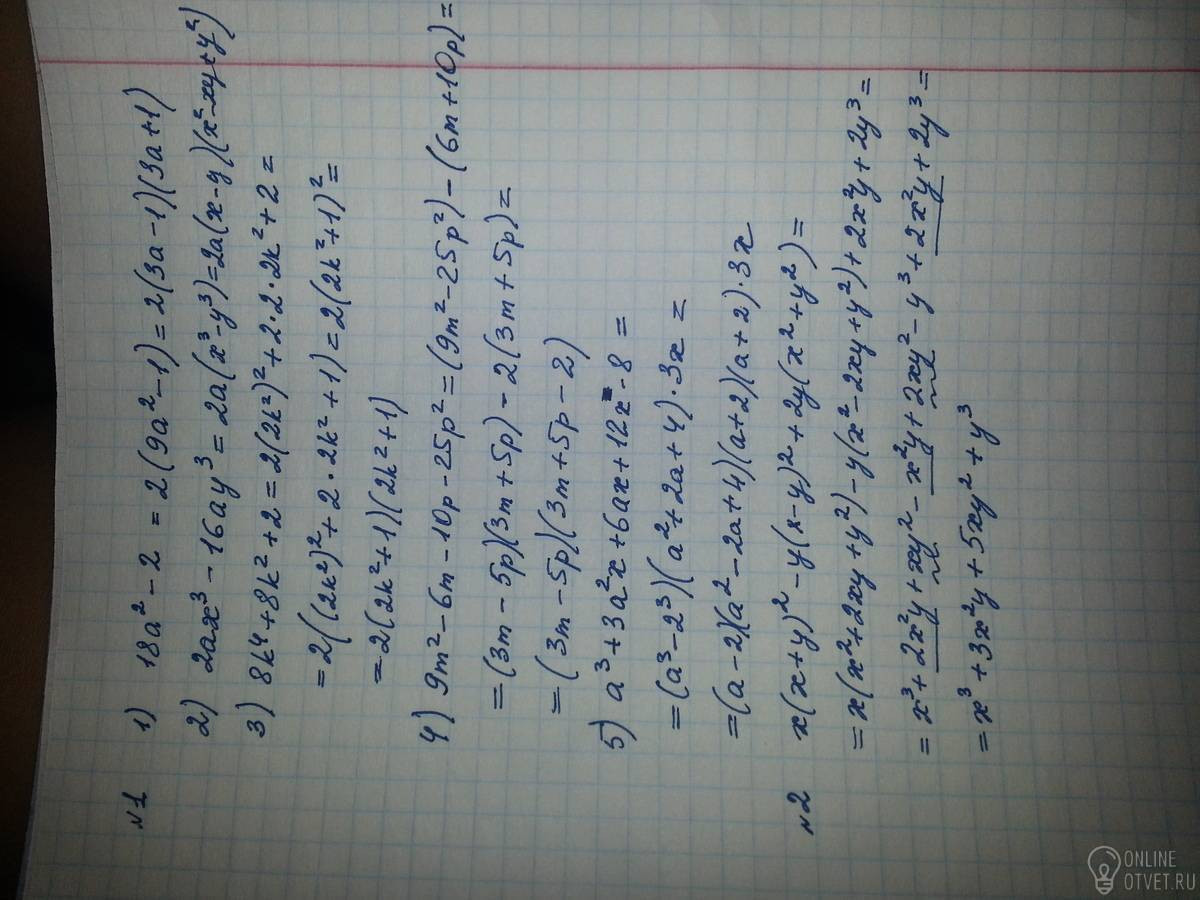 №1 1) 18a² - 2 = 2(9a² - 1) = 2(3a - 1)(3a + 1)
2) 2ax³ - 16ay³ = 2a(x³ - y³) = 2a(x - y)(x² - xy + y²)
3) 8k⁴ + 8k² + 2 = 2(2k²)² + 2·2·2k² + 2 =
= 2((2k²)² + 2·2k² + 1) = 2(2k² + 1)² =
= 2(2k² + 1)(2k² + 1)
4) 9m² - 6m - 10p - 25p² = (9m² - 25p²) - (6m + 10p) =
= (3m - 5p)(3m + 5p) - 2(3m + 5p) =
= (3m - 5p)(3m + 5p - 2)
5) a³ + 3a²x + 6ax + 12x - 8 =
= (a³ - 2³)(a² + 2a + 4)·3x =
= (a - 2)(a² - 2a + 4)(a + 2)(a + 2)·3x
№2 x(x + y)² - y(x - y)² + 2y(x² + y²) =
= x(x² + 2xy + y²) - y(x² - 2xy + y²) + 2x²y + 2y³ =
= x³ + 2x²y + xy² - x²y + 2xy² - y³ + 2x²y + 2y³ =
= x³ + 3x²y + 5xy² + y³
ONLINE
OTVET.RU